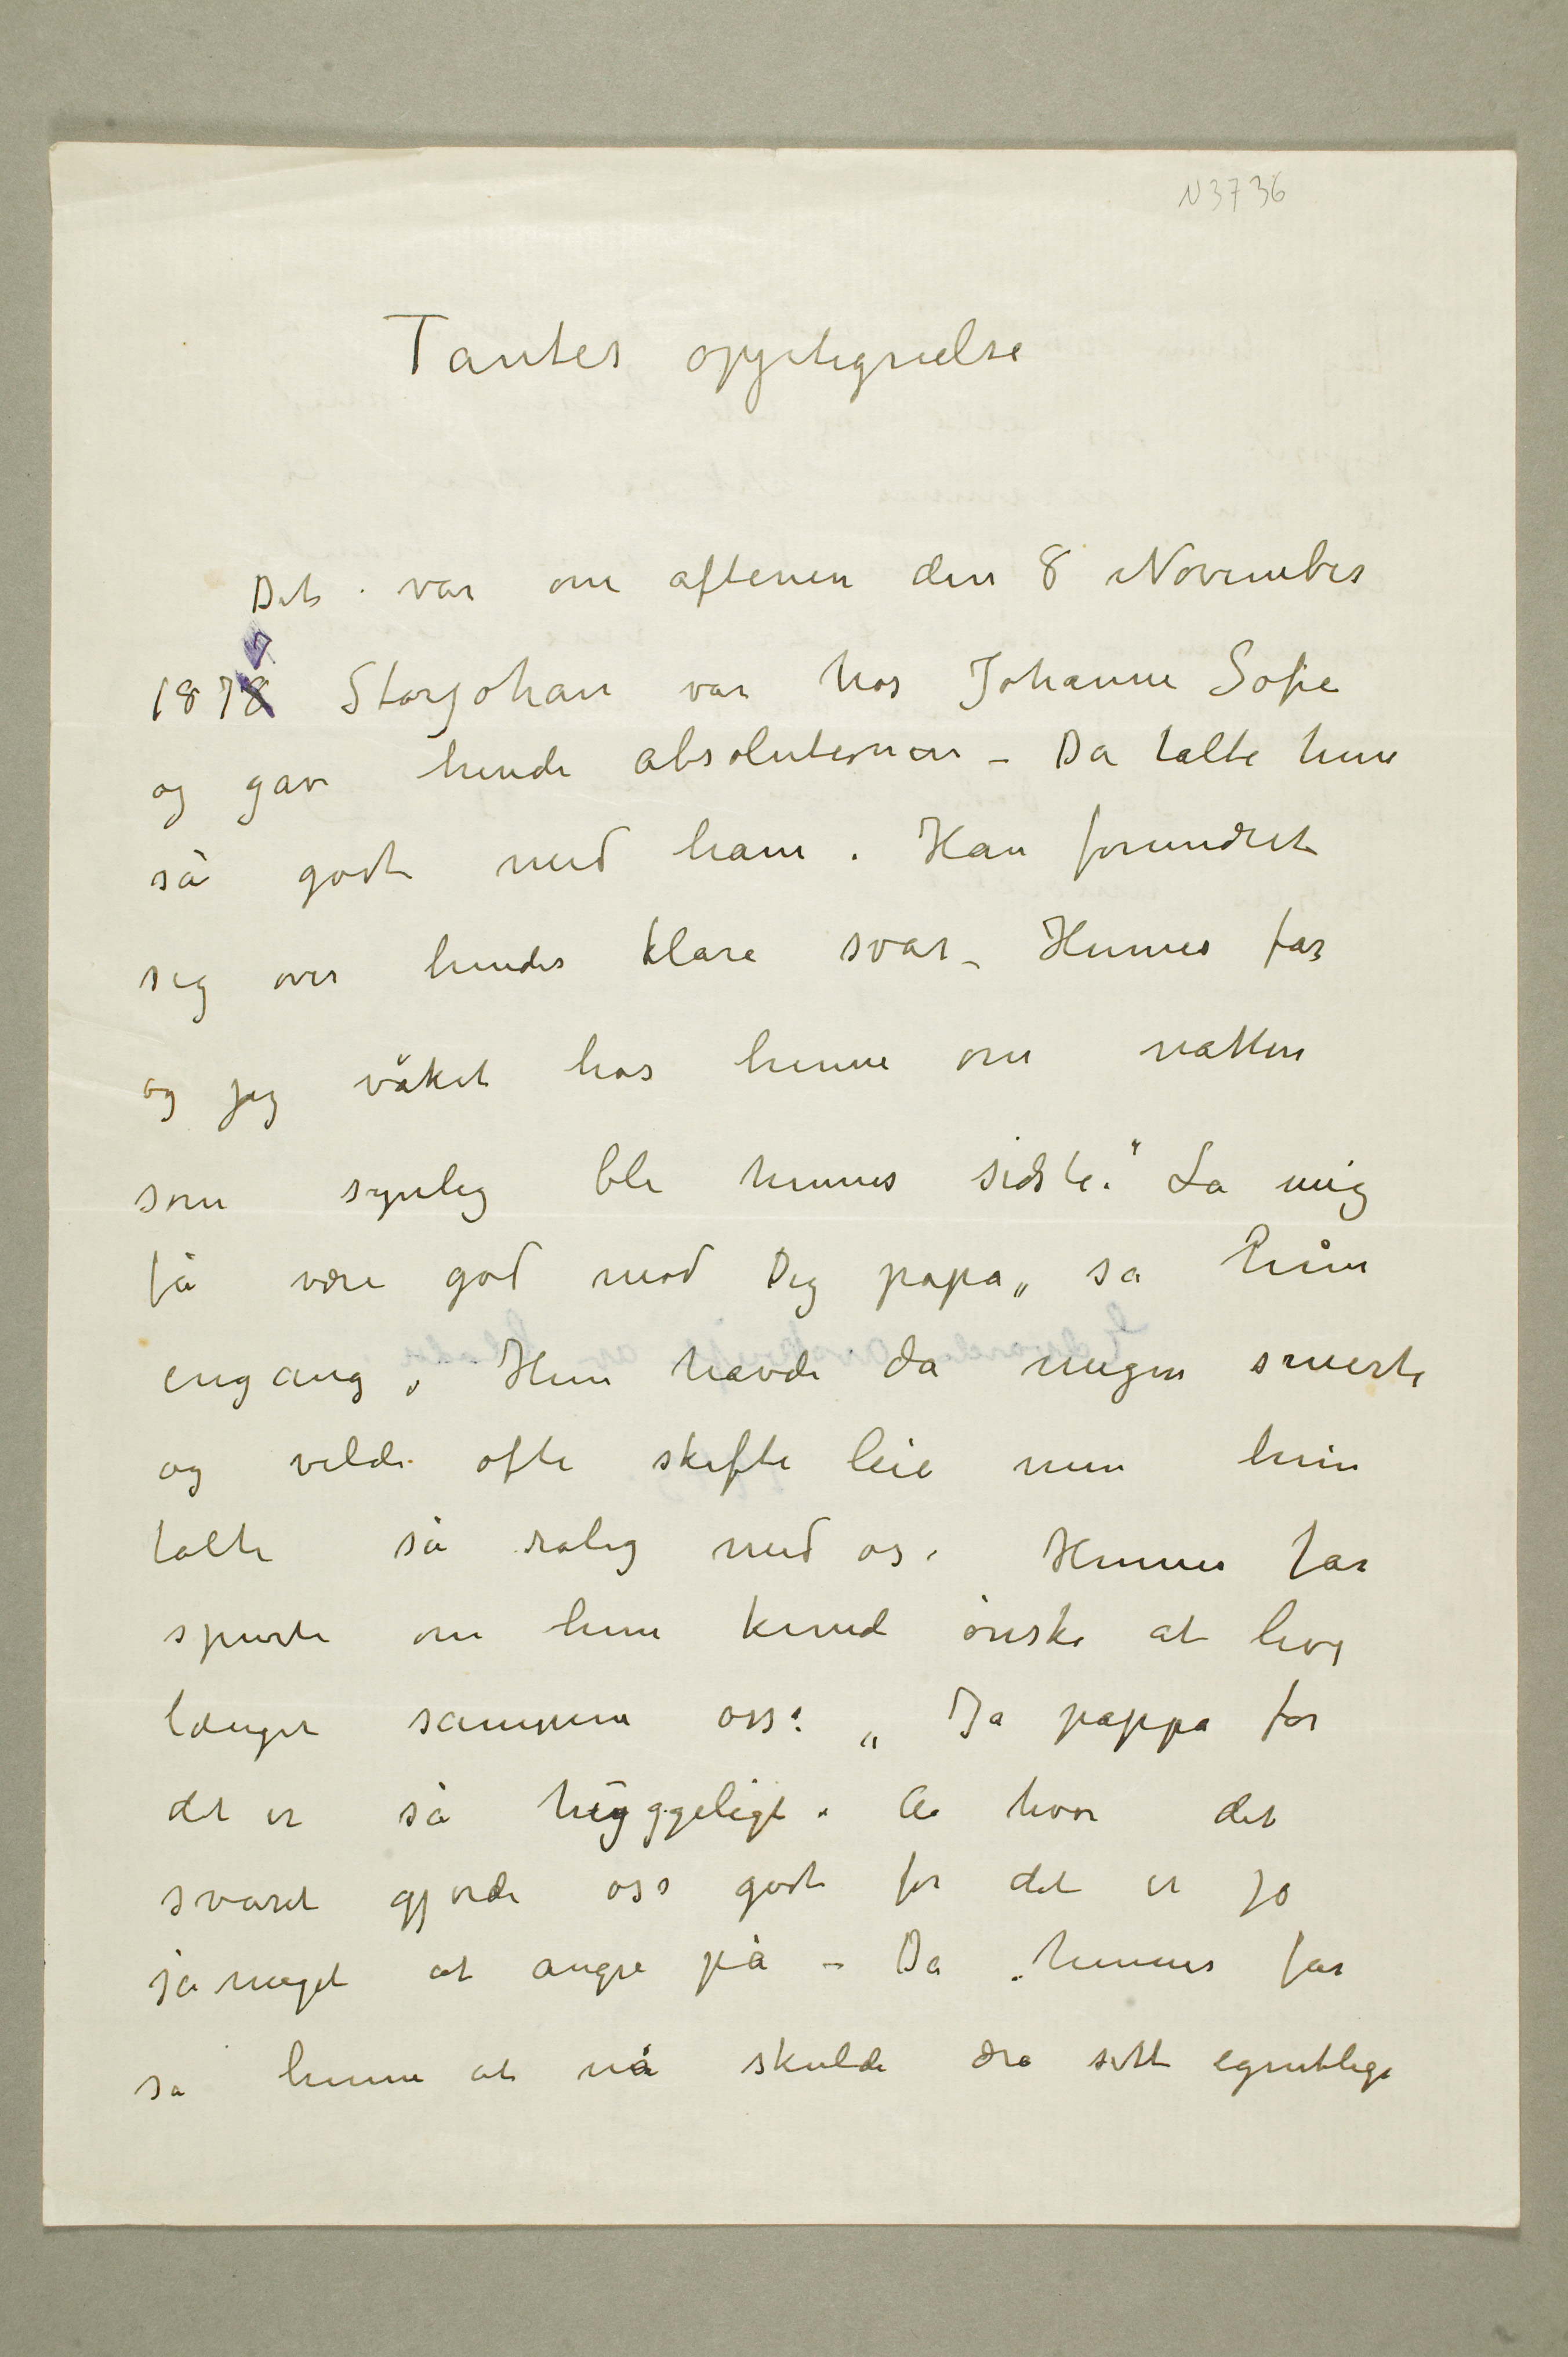 N3736
Tantes optegnelse
Det var om aftenen den 8 November
7
1878 Storjohan var hos Johanne Sofie
og gav hende absolutionen – Da talte hun
så godt med ham. Han forundret
sig over hendes klare svar – Hennes far
og jeg våket hos henne om natten
som synlig ble hennes sidste. "La mig
få være god mod Dig papa„ sa hun
engang. Hun havde da megen smerte
og vilde ofte skifte leie men hun
talte så rolig med os. Hennes far
spurte om hun kund ønske at leve
længer sammen oss: „Ja pappa for
det er så hyggeligt. Aa hvor det
svaret gjorde oss godt for det er jo
så meget at angre på – Da hennes far
sa henne at nå skulde dra sitt egentlige